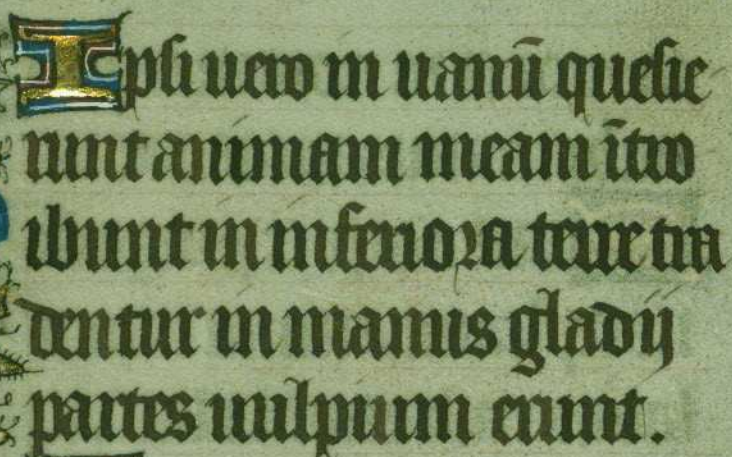 Ipsi uero in uanū quesie
runt animam meam ītro
ibunt in inferiora terre tra
dentur in manus gladij
partes uulpium erunt.